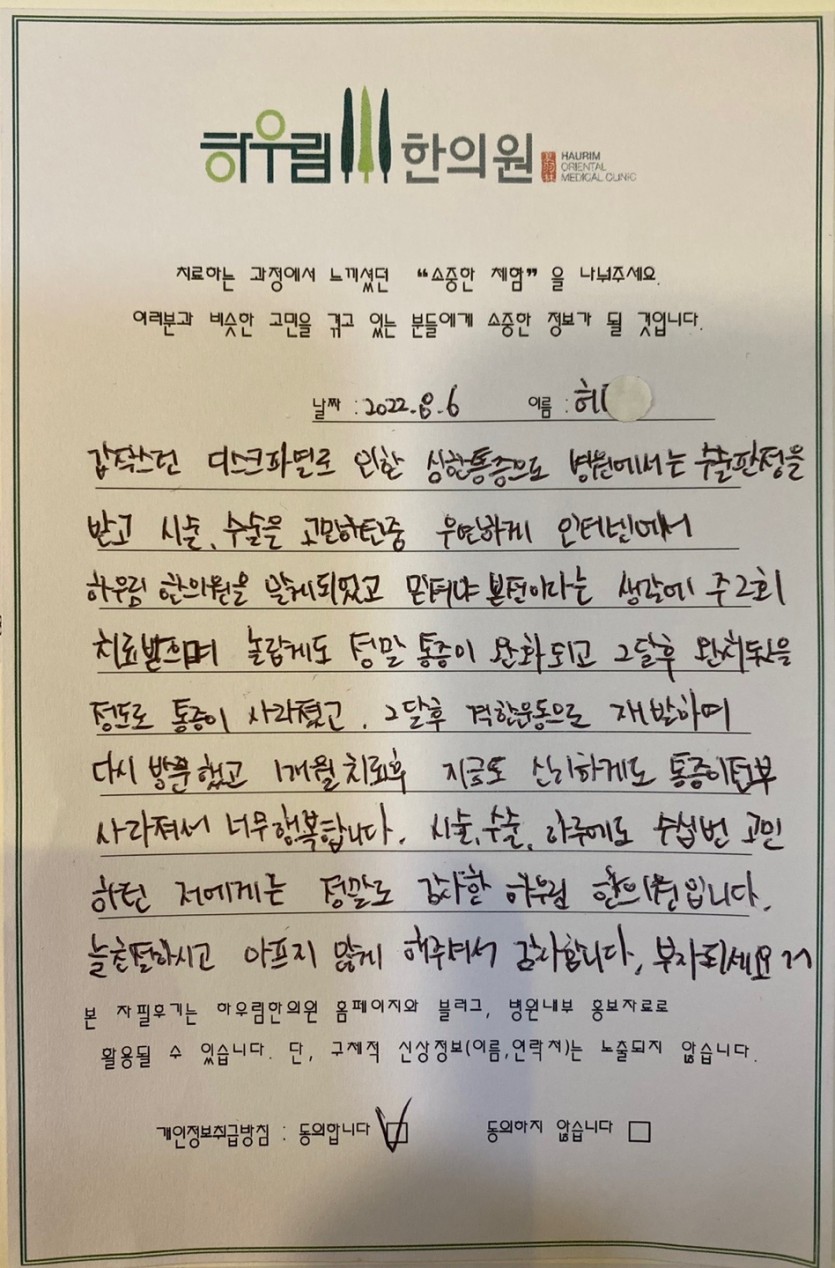 하우림 한의원 HAURIM
ORIENTAL
MEDICAL CLINIC
치료하는 과정에서 느끼셨던 “소중한 체험” 을 나눠주세요.
여러분과 비슷한 고민을 겪고 있는 분들에게 소중한 정보가 될 것입니다.
날짜 : 2022. 8. 6 이름 : 허
갑작스런 디스크파열로 인한 심한통증으로 병원에서는 수술판정을
받고 시술, 수술을 고민하던중 우연하게 인터넷에서
하우림 한의원을 알게되었고 믿져야 본전이라는 생각에 주2회
치료받으며 놀랍게도 정말 통증이 완화되고 2달후 완치됬을
정도로 통증이 사라졌고, 2달후 격한운동으로 재발하며
다시 방문했고 1개월 치료후 지금도 신기하게도 통증이전부
사라져서 너무행복합니다. 시술, 수술, 하루에도 수십번 고민
하던 저에게는 정말로 감사한 하우림 한의원입니다.
늘친절하시고 아프지 않게 해주셔서 감사합니다, 부자되세요
본 자필후기는 하우림한의원 홈페이지와 블러그, 병원내부 홍보자료로
활용될 수 있습니다. 단, 구체적 신상정보(이름,연락처)는 노출되지 않습니다.
개인정보취급방침 : 동의합니다 동의하지 않습니다